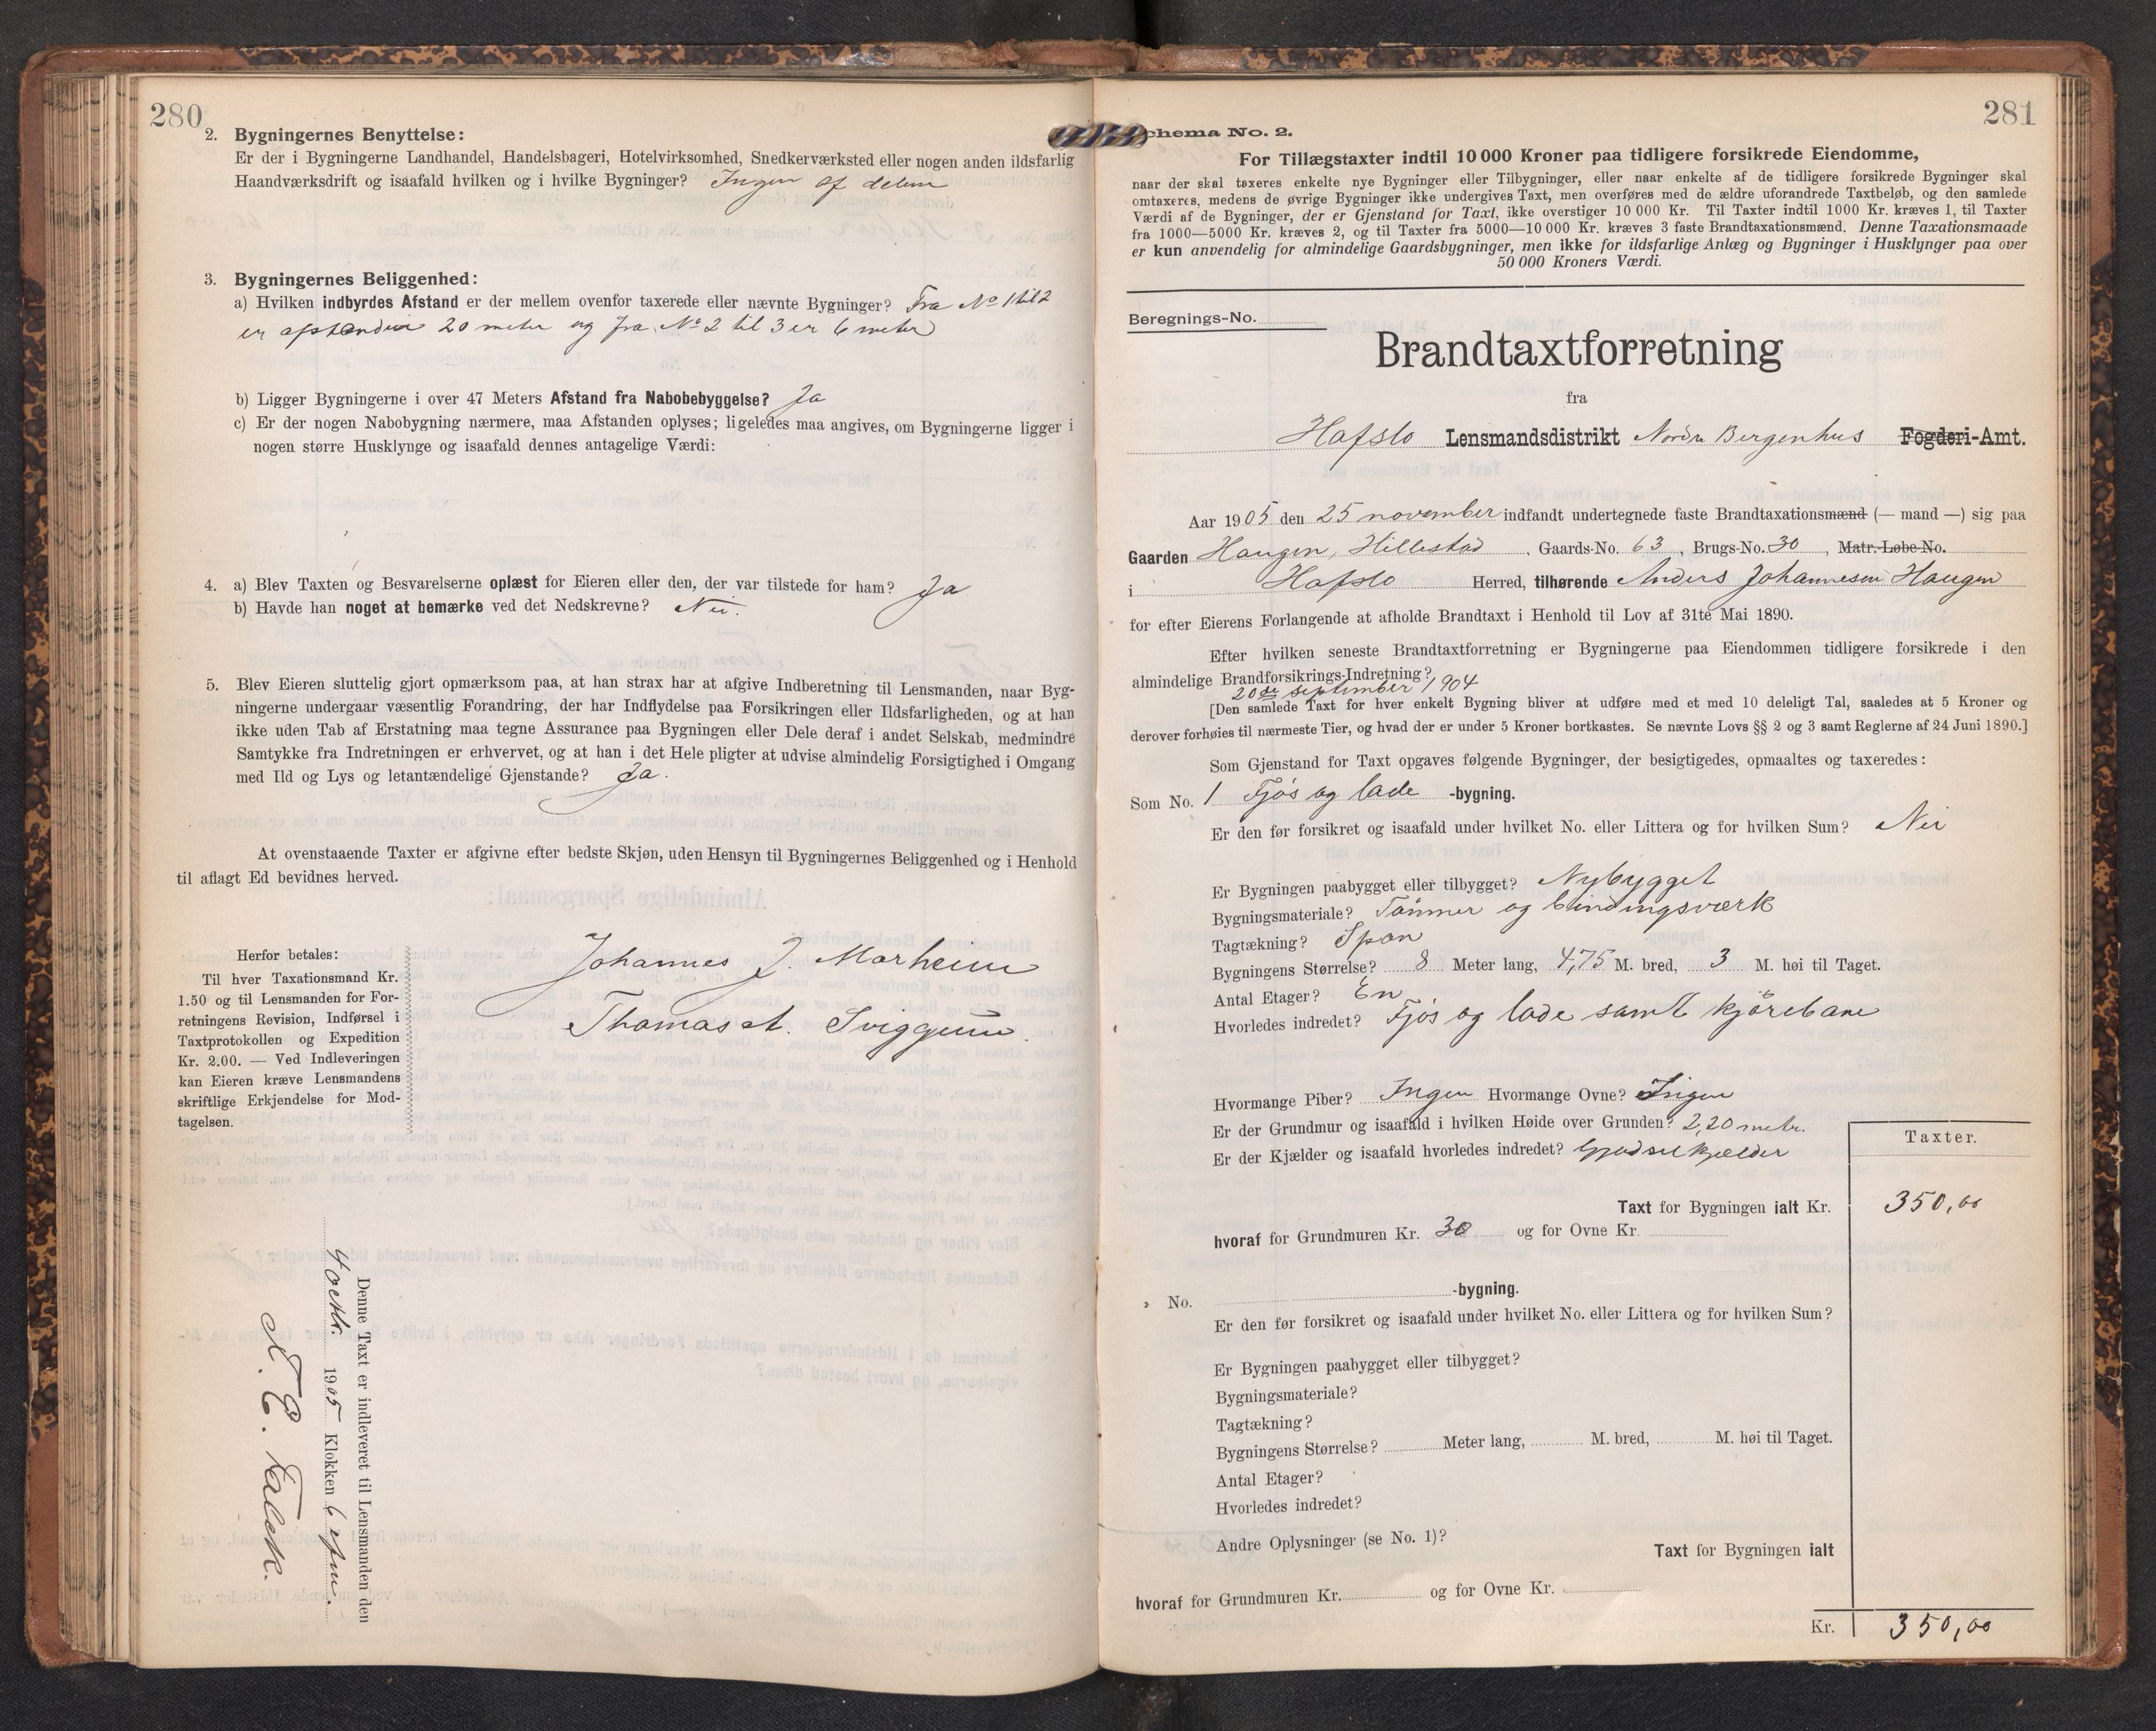 280
2. Bygningernes Benyttelse:
Er der i Bygningerne Landhandel, Handelsbageri, Hotelvirksomhed, Snedkerværksted eller nogen anden ildsfarlig
Haandværksdrift og isaafald hvilken og i hvilke Bygninger? Ingen af delene
3. Bygningernes Beliggenhed:
a) Hvilken indbyrdes Afstand er der mellem ovenfor taxerede eller nævnte Bygninger? Fra No 1 til 2
er afstanden 20 meter og fra No 2 til 3 er 6 meter
b) Ligger Bygningerne i over 47 Meters Afstand fra Nabobebyggelse? Ja
c) Er der nogen Nabobygning nærmere, maa Afstanden oplyses; ligeledes maa angives, om Bygningerne ligger i
nogen større Husklynge og isaafald dennes antagelige Værdi:
4. a) Blev Taxten og Besvarelserne oplæst for Eieren eller den, der var tilstede for ham? Ja
b) Havde han noget at bemærke ved det Nedskrevne? Nei.
5. Blev Eieren sluttelig gjort opmærksom paa, at han strax har at afgive Indberetning til Lensmanden, naar Byg-
ningerne undergaar væsentlig Forandring, der har Indflydelse paa Forsikringen eller Ildsfarligheden, og at han
ikke uden Tab af Erstatning maa tegne Assurance paa Bygningen eller Dele deraf i andet Selskab, medmindre
Samtykke fra Indretningen er erhvervet, og at han i det Hele pligter at udvise almindelig Forsigtighed i Omgang
med Ild og Lys og letantændelige Gjenstande? Ja.
At ovenstaaende Taxter er afgivne efter bedste Skjøn, uden Hensyn til Bygningernes Beliggenhed og i Henhold
til aflagt Ed bevidnes herved.
Herfor betales:
Til hver Taxationsmand Kr.
1.50 og til Lensmanden for For-
retningens Revision, Indførsel i
Taxtprotokollen og Expedition
Kr. 2.00. — Ved Indleveringen
kan Eieren kræve Lensmandens
skriftlige Erkjendelse for Mod-
tagelsen.
Johannes J. Marheim
Thomas A. Sviggum.
Denne Taxt er indleveret til Lensmanden den
4 octbr. 1905 Klokken 6 efm.
281
Schema No. 2.
For Tillægstaxter indtil 10 000 Kroner paa tidligere forsikrede Eiendomme,
naar der skal taxeres enkelte nye Bygninger eller Tilbygninger, eller naar enkelte af de tidligere forsikrede Bygninger skal
omtaxeres, medens de øvrige Bygninger ikke undergives Taxt, men overføres med de ældre uforandrede Taxtbeløb, og den samlede
Værdi af de Bygninger, der er Gjenstand for Taxt, ikke overstiger 10 000 Kr. Til Taxter indtil 1000 Kr. kræves 1, til Taxter
fra 1000—5000 Kr. kræves 2, og til Taxter fra 5000—10 000 Kr. kræves 3 faste Brandtaxationsmænd. Denne Taxationsmaade
er kun anvendelig for almindelige Gaardsbygninger, men ikke for ildsfarlige Anlæg og Bygninger i Husklynger paa over
50 000 Kroners Værdi.
Beregnings-No.
Brandtaxtforretning
fra
Hafslo Lensmandsdistrikt Nordre Bergenhus Fogderi-Amt.
Aar 1905 den 25 november indfandt undertegnede faste Brandtaxationsmænd (— mand —) sig paa
Gaarden Haugen, Hillestad, Gaards-No. 63, Brugs-No. 30, Matr.-Løbe-No.
i Hafslo Herred, tilhørende Anders Johannesen Haugen
for efter Eierens Forlangende at afholde Brandtaxt i Henhold til Lov af 31te Mai 1890.
Efter hvilken seneste Brandtaxtforretning er Bygningerne paa Eiendommen tidligere forsikrede i den
almindelige Brandforsikrings-Indretning?
20de september 1904
[Den samlede Taxt for hver enkelt Bygning bliver at udføre med et med 10 deleligt Tal, saaledes at 5 Kroner og
derover forhøies til nærmeste Tier, og hvad der er under 5 Kroner bortkastes. Se nævnte Lovs §§ 2 og 3 samt Reglerne af 24 Juni 1890.]
Som Gjenstand for Taxt opgaves følgende Bygninger, der besigtigedes, opmaaltes og taxeredes:
Som No. 1 Fjøs og lade -bygning.
Er den før forsikret og isaafald under hvilket No. eller Littera og for hvilken Sum? Nei
Er Bygningen paabygget eller tilbygget? Nybygget
Bygningsmateriale? Tømmer og bindingsværk
Tagtækning? Spon
Bygningens Størrelse? 8 Meter lang, 4,75 M. bred, 3 M. høi til Taget.
Antal Etager? En
Hvorledes indredet? Fjøs og lade samt kjørebane
Hvormange Piber? Ingen Hvormange Ovne? Ingen
Er der Grundmur og isaafald i hvilken Høide over Grunden? 2,20 metr.
Er der Kjælder og isaafald hvorledes indredet? Gjødselkjælder
Taxter.
Taxt for Bygningen ialt Kr. 350,00
hvoraf for Grundmuren Kr. 30 og for Ovne Kr.
» No. -bygning.
Er den før forsikret og isaafald under hvilket No. eller Littera og for hvilken Sum?
Er Bygningen paabygget eller tilbygget?
Bygningsmateriale?
Tagtækning?
Bygningens Størrelse? Meter lang, M. bred, M. høi til Taget.
Antal Etager?
Hvorledes indredet?
Andre Oplysninger (se No. 1)?
Taxt for Bygningen ialt
hvoraf for Grundmuren Kr. og for Ovne Kr.
Kr. 350,00